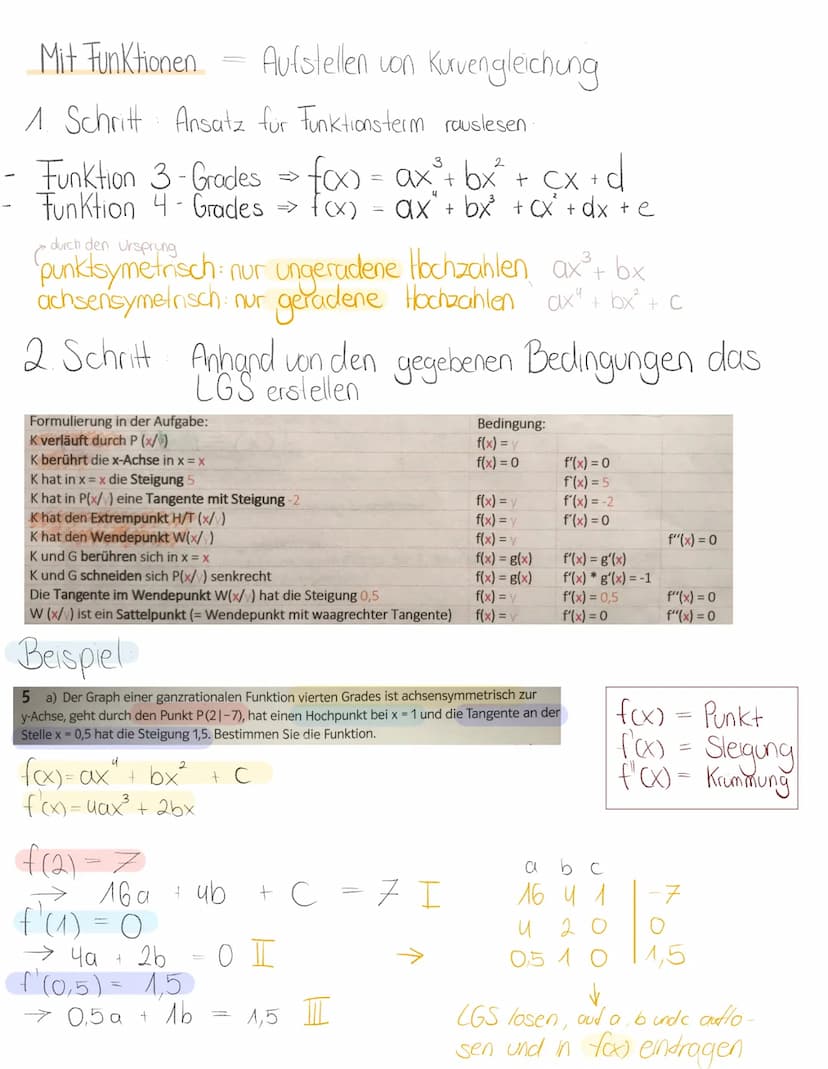 Mit Funktionen = Aufstellen von Kurvengleichung
1. Schritt: Ansatz für Funktionsterm rauslesen.
- Funktion 3-Grades ⇒ f(x) = ax³ + bx² + cx + d
- Funktion 4-Grades ⇒ f(x) = ax⁴ + bx³ + cx² + dx + e
durch den Ursprung
punktsymetrisch: nur ungeradene Hochzahlen ax³ + bx
achsensymetrisch: nur geradene Hochzahlen ax⁴ + bx² + c
2. Schritt Anhand von den gegebenen Bedingungen das
LGS erstellen
Formulierung in der Aufgabe: Bedingung:
K verläuft durch P (x/y) f(x) = y
K berührt die x-Achse in x = x f(x) = 0 f'(x) = 0
K hat in x = x die Steigung 5 f'(x) = 5
K hat in P(x/y) eine Tangente mit Steigung -2 f(x) = y f'(x) = -2
K hat den Extrempunkt H/T (x/y) f(x) = y f'(x) = 0
K hat den Wendepunkt W(x/y) f(x) = y f''(x) = 0
K und G berühren sich in x = x f(x) = g(x) f'(x) = g'(x)
K und G schneiden sich P(x/y) senkrecht f(x) = g(x) f'(x) * g'(x) = -1
Die Tangente im Wendepunkt W(x/y) hat die Steigung 0,5 f(x) = y f'(x) = 0,5 f''(x) = 0
W (x/y) ist ein Sattelpunkt (= Wendepunkt mit waagrechter Tangente) f(x) = y f'(x) = 0 f''(x) = 0
Beispiel
5 a) Der Graph einer ganzrationalen Funktion vierten Grades ist achsensymmetrisch zur
y-Achse, geht durch den Punkt P(2|-7), hat einen Hochpunkt bei x = 1 und die Tangente an der
Stelle x = 0,5 hat die Steigung 1,5. Bestimmen Sie die Funktion.
f(x) = Punkt
f'(x) = Steigung
f''(x) = Krümmung
f(x) = ax⁴ + bx² + c
f'(x) = 4ax³ + 2bx
f(2) = 7
→ 16a + 4b + C = 7 I
f'(1) = 0
→ 4a + 2b = 0 II
f'(0,5) = 1,5
→ 0,5a + 1b = 1,5 III
a b c
16 4 1 | -7
4 2 0 | 0
→ 0,5 1 0 | 1,5
↓
LGS lösen, auf a, b und c auflö-
sen und in f(x) eindragen